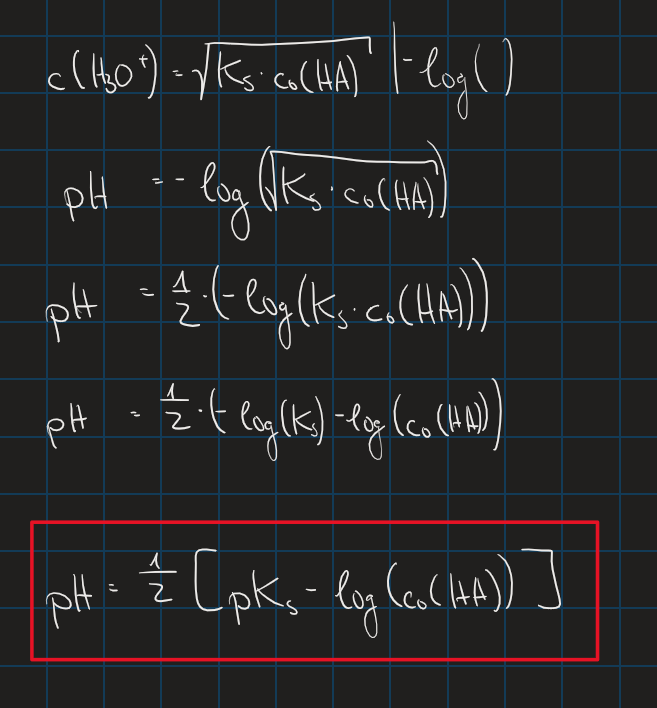 c(H₃O⁺) = √(Kₛ · c₀(HA)) | -log( )
pH = - log(√(Kₛ · c₀(HA)))
pH = 1/2 · (- log(Kₛ · c₀(HA)))
pH = 1/2 · (- log(Kₛ) - log(c₀(HA)))
pH = 1/2 [pKₛ - log(c₀(HA))]